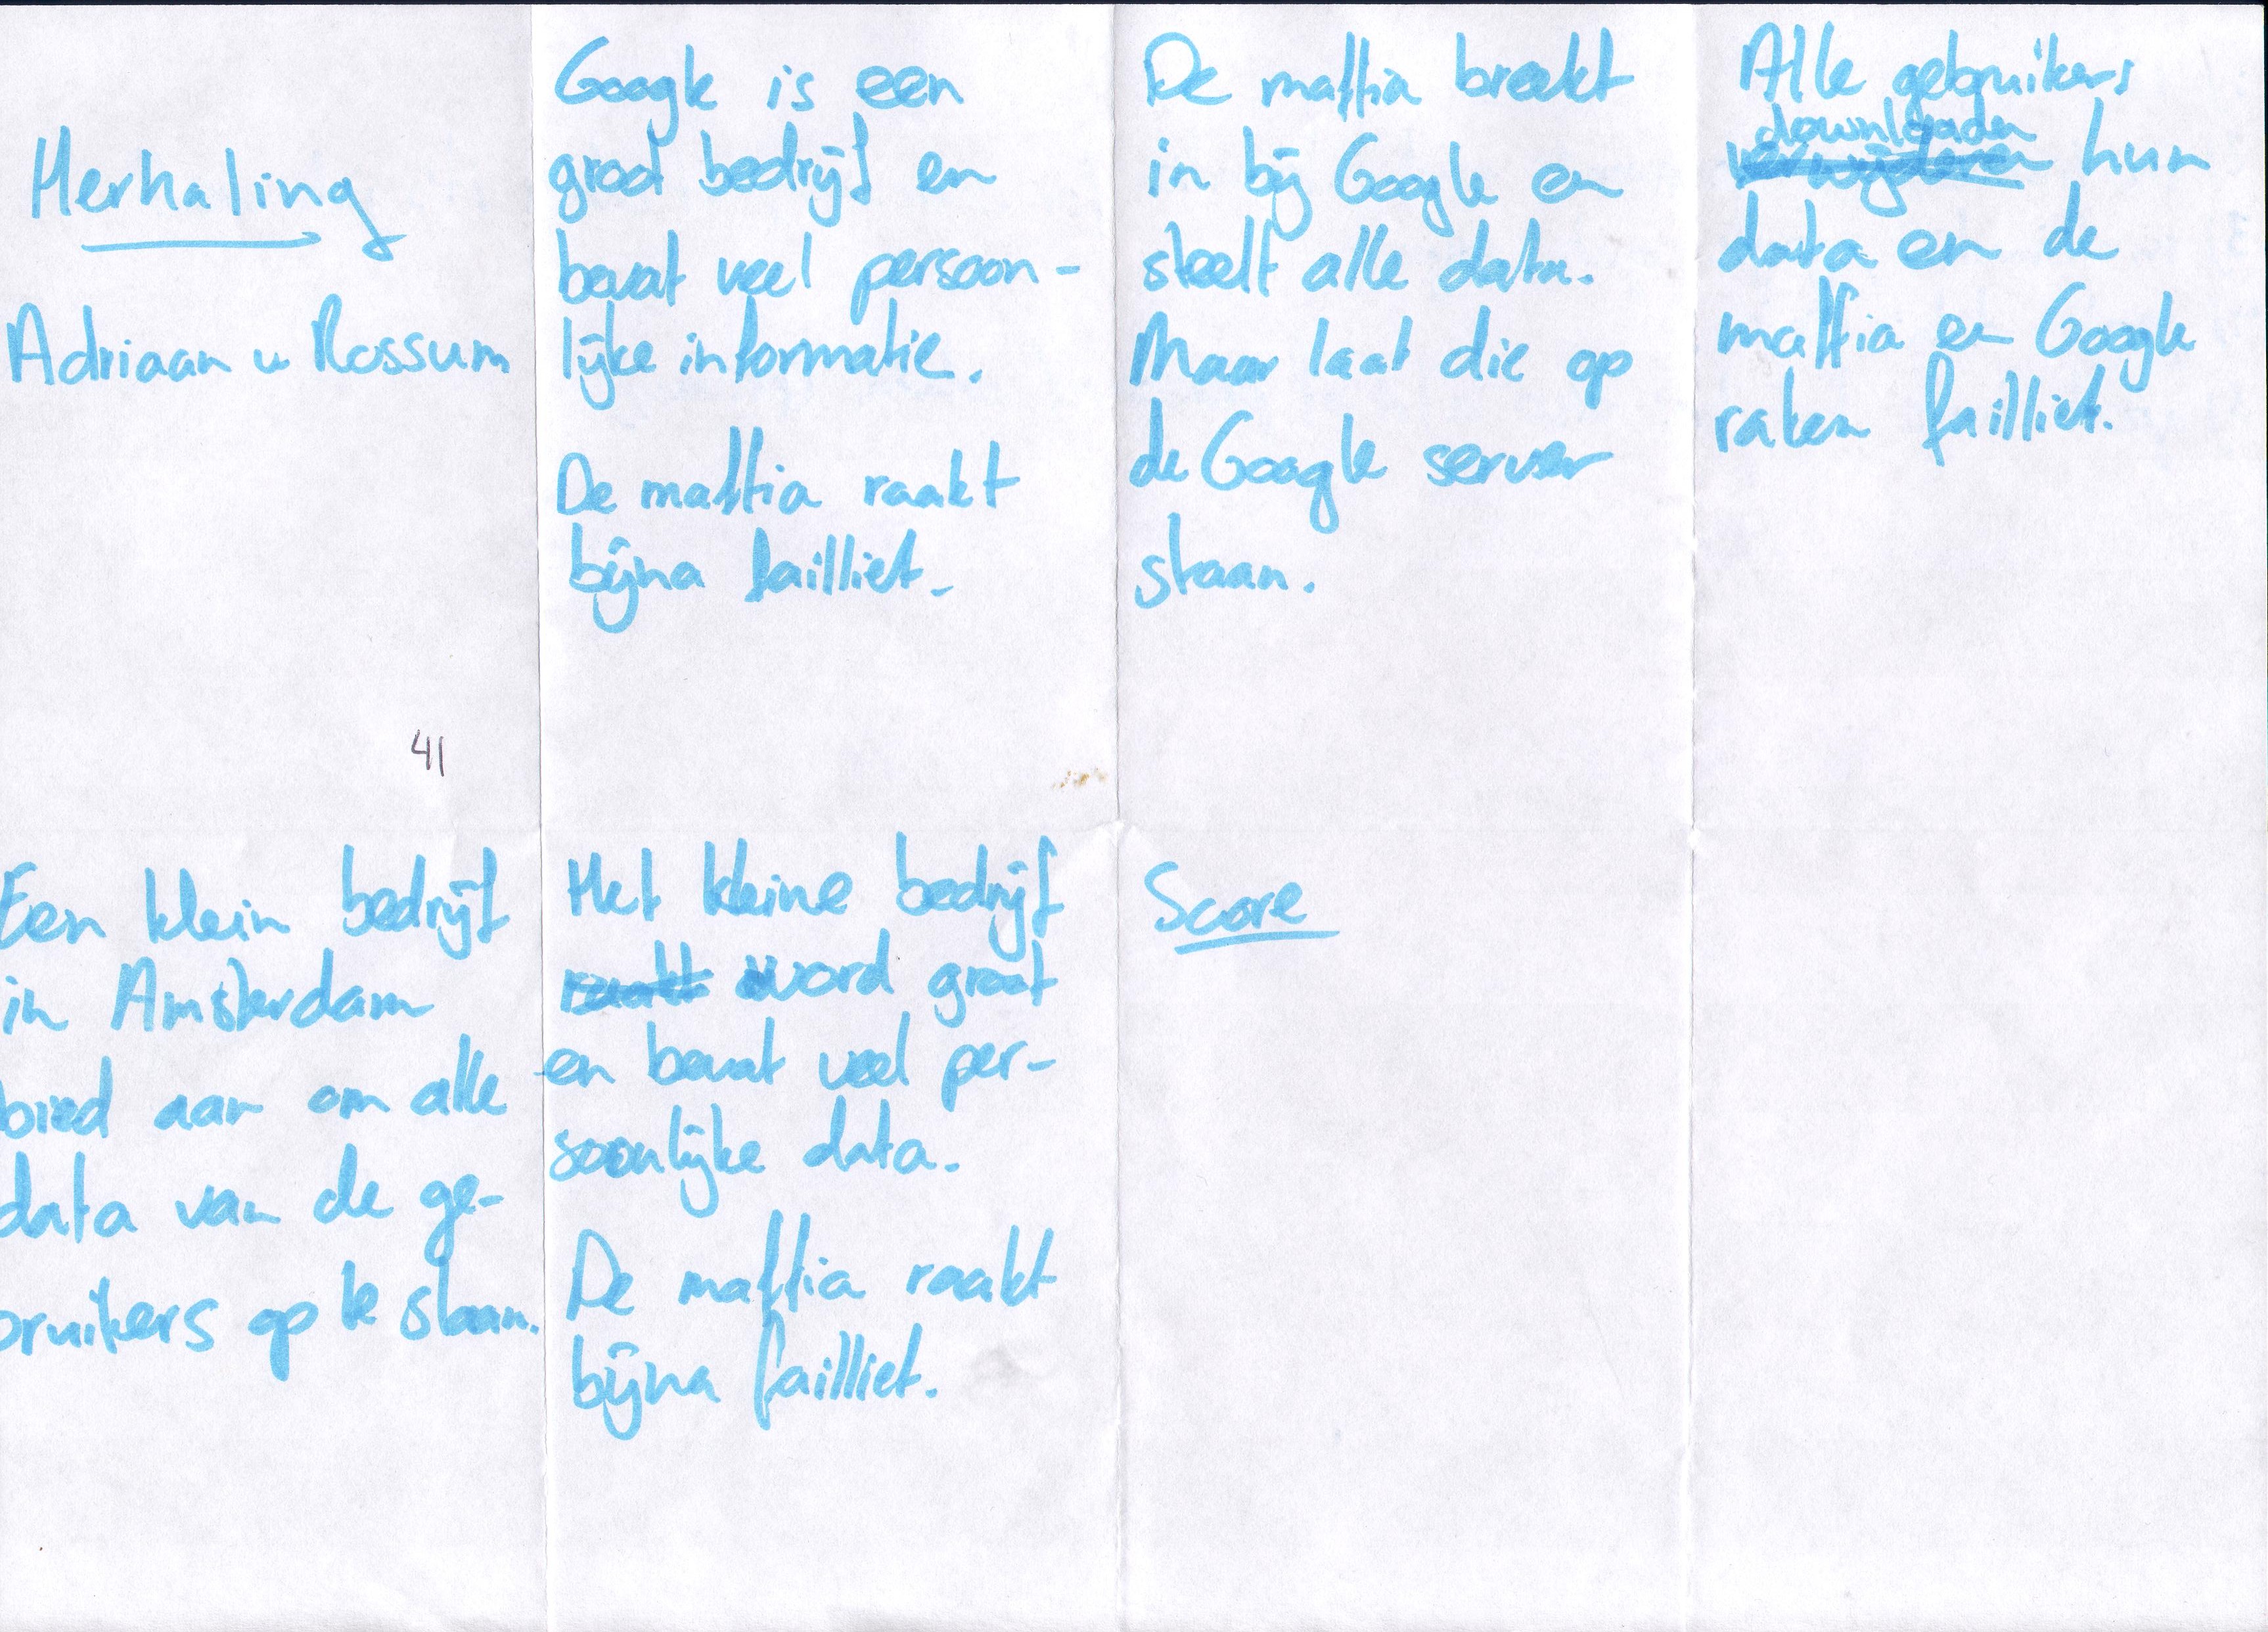 Herhaling
Adriaan v Rossum
41
Google is een
groot bedrijf en
bevat veel persoon-
lijke informatie.
De maffia raakt
bijna failliet.
De maffia breekt
in bij Google en
steelt alle data.
Maar laat die op
de Google server
staan.
Alle gebruikers
downloaden
verwijderen hun
data en de
maffia en Google
raken failliet.
Een klein bedrijf
in Amsterdam
bied aan om alle
data van de ge-
bruikers op te slaan.
Het kleine bedrijf
raakt word groot
en bevat veel per-
soonlijke data.
De maffia raakt
bijna failliet.
Score